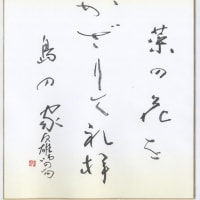 菜の花を
かざりて礼拝
島の家